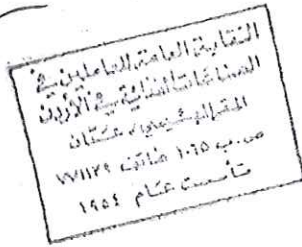 النقابة العامة للعاملين في
الصناعات الغذائية في الأردن
المقر الرئيسي / عمّان
ص. ب ١٠٦٥ هاتف ٧٧١١٢٩
تأسست عام ١٩٥٤